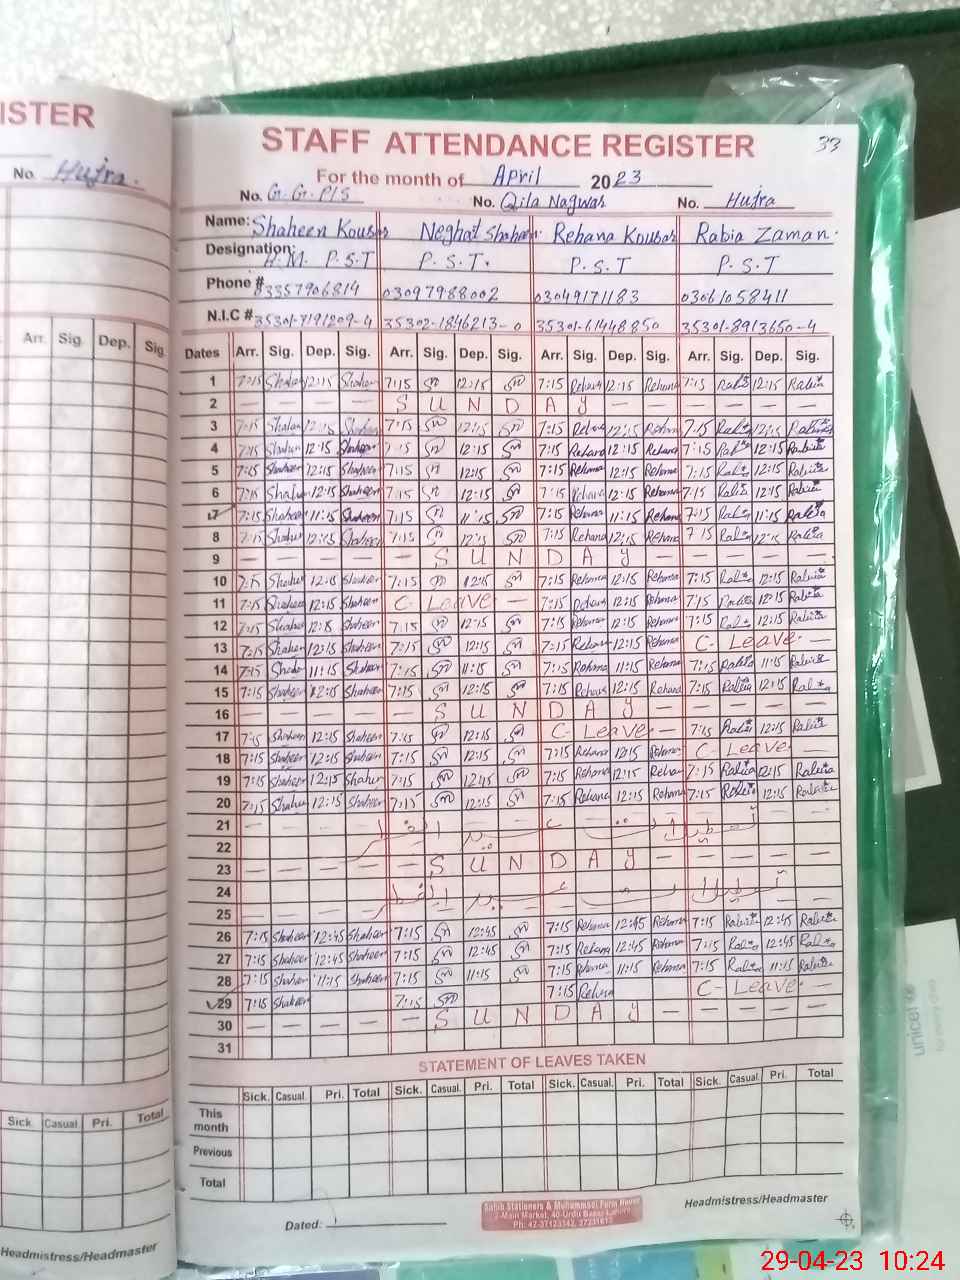 ISTER
No. Hujra.
Arr. Sig. Dep. Sig.
Sick. Casual. Pri. Total
Headmistress/Headmaster
STAFF ATTENDANCE REGISTER 33
For the month of April 2023
No. G.G.P/S No. Qila Nagwas No. Hujra
Name: Shaheen Kousar Neghat Shaheen Rehana Kousar Rabia Zaman.
Designation: H.M. P.S.T P.S.T. P.S.T P.S.T
Phone # 03357906814 03097988002 03049171183 03061058411
N.I.C # 35301-7191209-4 35302-1846213-0 35301-61448850 35301-8913650-4
Dates Arr. Sig. Dep. Sig. Arr. Sig. Dep. Sig. Arr. Sig. Dep. Sig. Arr. Sig. Dep. Sig.
1 7:15 Shaheen 12:15 Shaheen 7:15 12:15 7:15 Rehana 12:15 Rehana 7:15 Rabia 12:15 Rabia
2 — — — — S U N D A Y — — — — —
3 7:15 Shaheen 12:15 Shaheen 7:15 12:15 7:15 Rehana 12:15 Rehana 7:15 Rabia 12:15 Rabia
4 7:15 Shaheen 12:15 Shaheen 7:15 12:15 7:15 Rehana 12:15 Rehana 7:15 Rabia 12:15 Rabia
5 7:15 Shaheen 12:15 Shaheen 7:15 12:15 7:15 Rehana 12:15 Rehana 7:15 Rabia 12:15 Rabia
6 7:15 Shaheen 12:15 Shaheen 7:15 12:15 7:15 Rehana 12:15 Rehana 7:15 Rabia 12:15 Rabia
7 7:15 Shaheen 11:15 Shaheen 7:15 11:15 7:15 Rehana 11:15 Rehana 7:15 Rabia 11:15 Rabia
8 7:15 Shaheen 12:15 Shaheen 7:15 12:15 7:15 Rehana 12:15 Rehana 7:15 Rabia 12:15 Rabia
9 — — — — — S U N D A Y — — — — —
10 7:15 Shaheen 12:15 Shaheen 7:15 12:15 7:15 Rehana 12:15 Rehana 7:15 Rabia 12:15 Rabia
11 7:15 Shaheen 12:15 Shaheen C- Leave — 7:15 Rehana 12:15 Rehana 7:15 Rabia 12:15 Rabia
12 7:15 Shaheen 12:15 Shaheen 7:15 12:15 7:15 Rehana 12:15 Rehana 7:15 Rabia 12:15 Rabia
13 7:15 Shaheen 12:15 Shaheen 7:15 12:15 7:15 Rehana 12:15 Rehana C- Leave —
14 7:15 Shaheen 11:15 Shaheen 7:15 11:15 7:15 Rehana 11:15 Rehana 7:15 Rabia 11:15 Rabia
15 7:15 Shaheen 12:15 Shaheen 7:15 12:15 7:15 Rehana 12:15 Rehana 7:15 Rabia 12:15 Rabia
16 — — — — — S U N D A Y — — — — —
17 7:15 Shaheen 12:15 Shaheen 7:15 12:15 C- Leave — 7:15 Rabia 12:15 Rabia
18 7:15 Shaheen 12:15 Shaheen 7:15 12:15 7:15 Rehana 12:15 Rehana C- Leave —
19 7:15 Shaheen 12:15 Shaheen 7:15 12:45 7:15 Rehana 12:15 Rehana 7:15 Rabia 12:15 Rabia
20 7:15 Shaheen 12:15 Shaheen 7:15 12:15 7:15 Rehana 12:15 Rehana 7:15 Rabia 12:15 Rabia
21 تعطیلات عید الفطر
22
23 — — — — — S U N D A Y — — — — —
24 تعطیلات عید الفطر
25
26 7:15 Shaheen 12:45 Shaheen 7:15 12:45 7:15 Rehana 12:45 Rehana 7:15 Rabia 12:45 Rabia
27 7:15 Shaheen 12:45 Shaheen 7:15 12:45 7:15 Rehana 12:45 Rehana 7:15 Rabia 12:45 Rabia
28 7:15 Shaheen 11:15 Shaheen 7:15 11:15 7:15 Rehana 11:15 Rehana 7:15 Rabia 11:15 Rabia
29 7:15 Shaheen 7:15 7:15 Rehana C- Leave —
30 — — — — — S U N D A Y — — — — —
31
STATEMENT OF LEAVES TAKEN
Sick. Casual. Pri. Total Sick. Casual. Pri. Total Sick. Casual. Pri. Total Sick. Casual. Pri. Total
This month
Previous
Total
Dated:
Sahib Stationers & Muhammadi Form House
2-Main Market, 40-Urdu Bazar Lahore
Headmistress/Headmaster
unicef
for every child
29-04-23 10:24